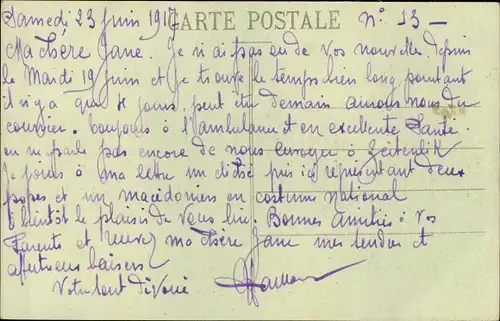 Samedi 23 Juin 1917 CARTE POSTALE N° 13 —
Ma Chère Jane. Je n'ai pas eu de vos nouvelles depuis
le Mardi 19 Juin et je trouve le temps bien long pourtant
il n'y a que 4 jours, peut etre demain aurons nous du
courrier. Toujours à l'ambulance et en excellente Santé.
on ne parle pas encore de nous envoyer à Zeitenlik
Je joins à ma lettre un cliché pris ici représentant deux
popes et un macédonien en costume National
à bientôt le plaisir de vous lire. Bonnes Amitiés à vos
Parents et recevez ma Chère Jane mes tendres et
affectueux baisers
Votre tout dévoué